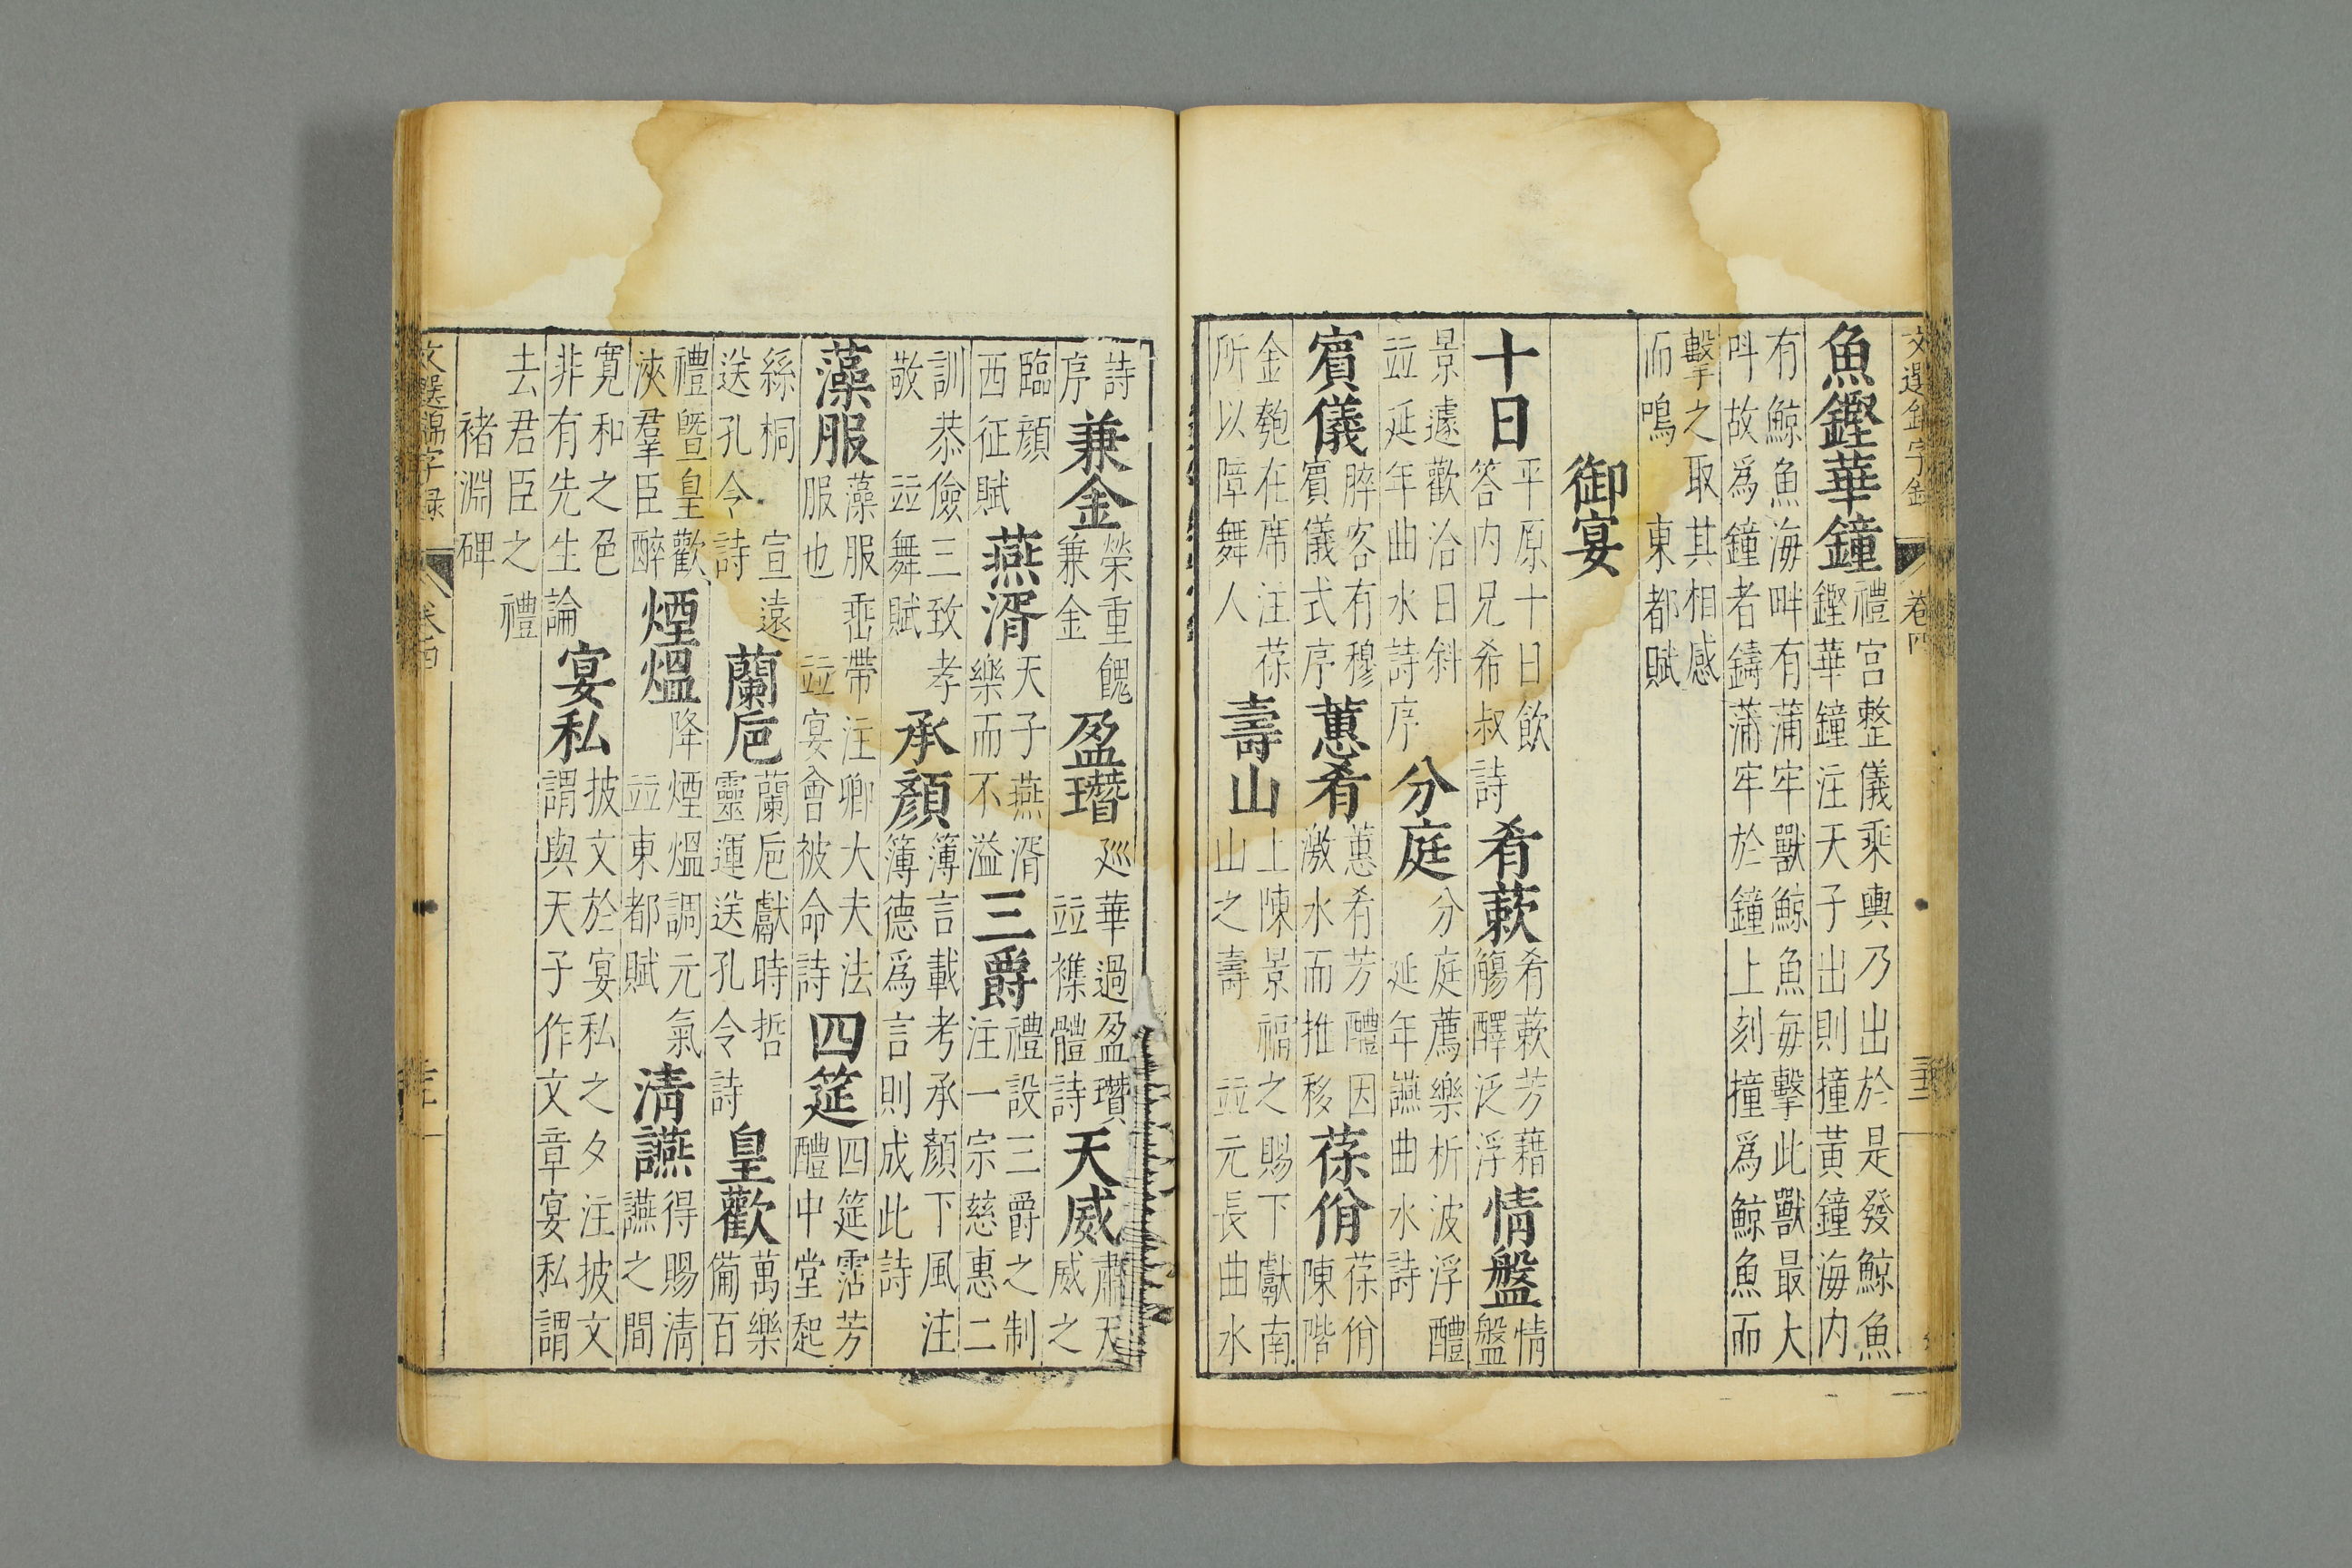 文選錦字錄 卷四
魚鏗華鐘
禮宮整儀乘輿乃出於是發鯨魚
鏗華鐘注天子出則撞黃鐘海内
有鯨魚海畔有蒲牢獸鯨魚每擊此獸最大
吽故爲鐘者鑄蒲牢於鐘上刻撞爲鯨魚而
擊之取其相感
而鳴 東都賦
御宴
十日
平原十日飲
答内兄希叔詩
肴蔌
肴蔌芳藉
觴醳泛浮
情盤
情
盤
景遽歡洽日斜
竝延年曲水詩序
分庭
分庭薦樂析波浮醴
延年讌曲水詩
賔儀
脺客有穆
賔儀式序
蕙肴
蕙肴芳醴因
激水而推移
葆佾
葆佾
陳階
金匏在席注葆
所以障舞人
壽山
上陳景福之賜下獻南
山之壽 竝元長曲水
詩
序
兼金
榮重餽
兼金
盈瓚
廵華過盈瓚
竝襍體詩
天威
肅天
威之
臨顔
西征賦
燕湑
天子燕湑
樂而不溢
三爵
禮設三爵之制
注一宗慈惠二
訓恭儉三致孝
敬 竝舞賦
承顏
簿言載考承顏下風注
簿德爲言則成此詩
藻服
藻服埀帶注卿大夫法
服也 竝宴會被命詩
四筵
四筵霑芳
醴中堂起
絲桐 宣遠
送孔令詩
蘭巵
蘭巵獻時哲
靈運送孔令詩
皇歡
萬樂
備百
禮曁皇歡
浹羣臣醉
煙熅
降煙熅調元氣
竝東都賦
清讌
得賜清
讌之間
寛和之色
非有先生論
宴私
披文於宴私之夕注披文
謂與天子作文章宴私謂
去君臣之禮
褚淵碑
文選錦字錄 卷四